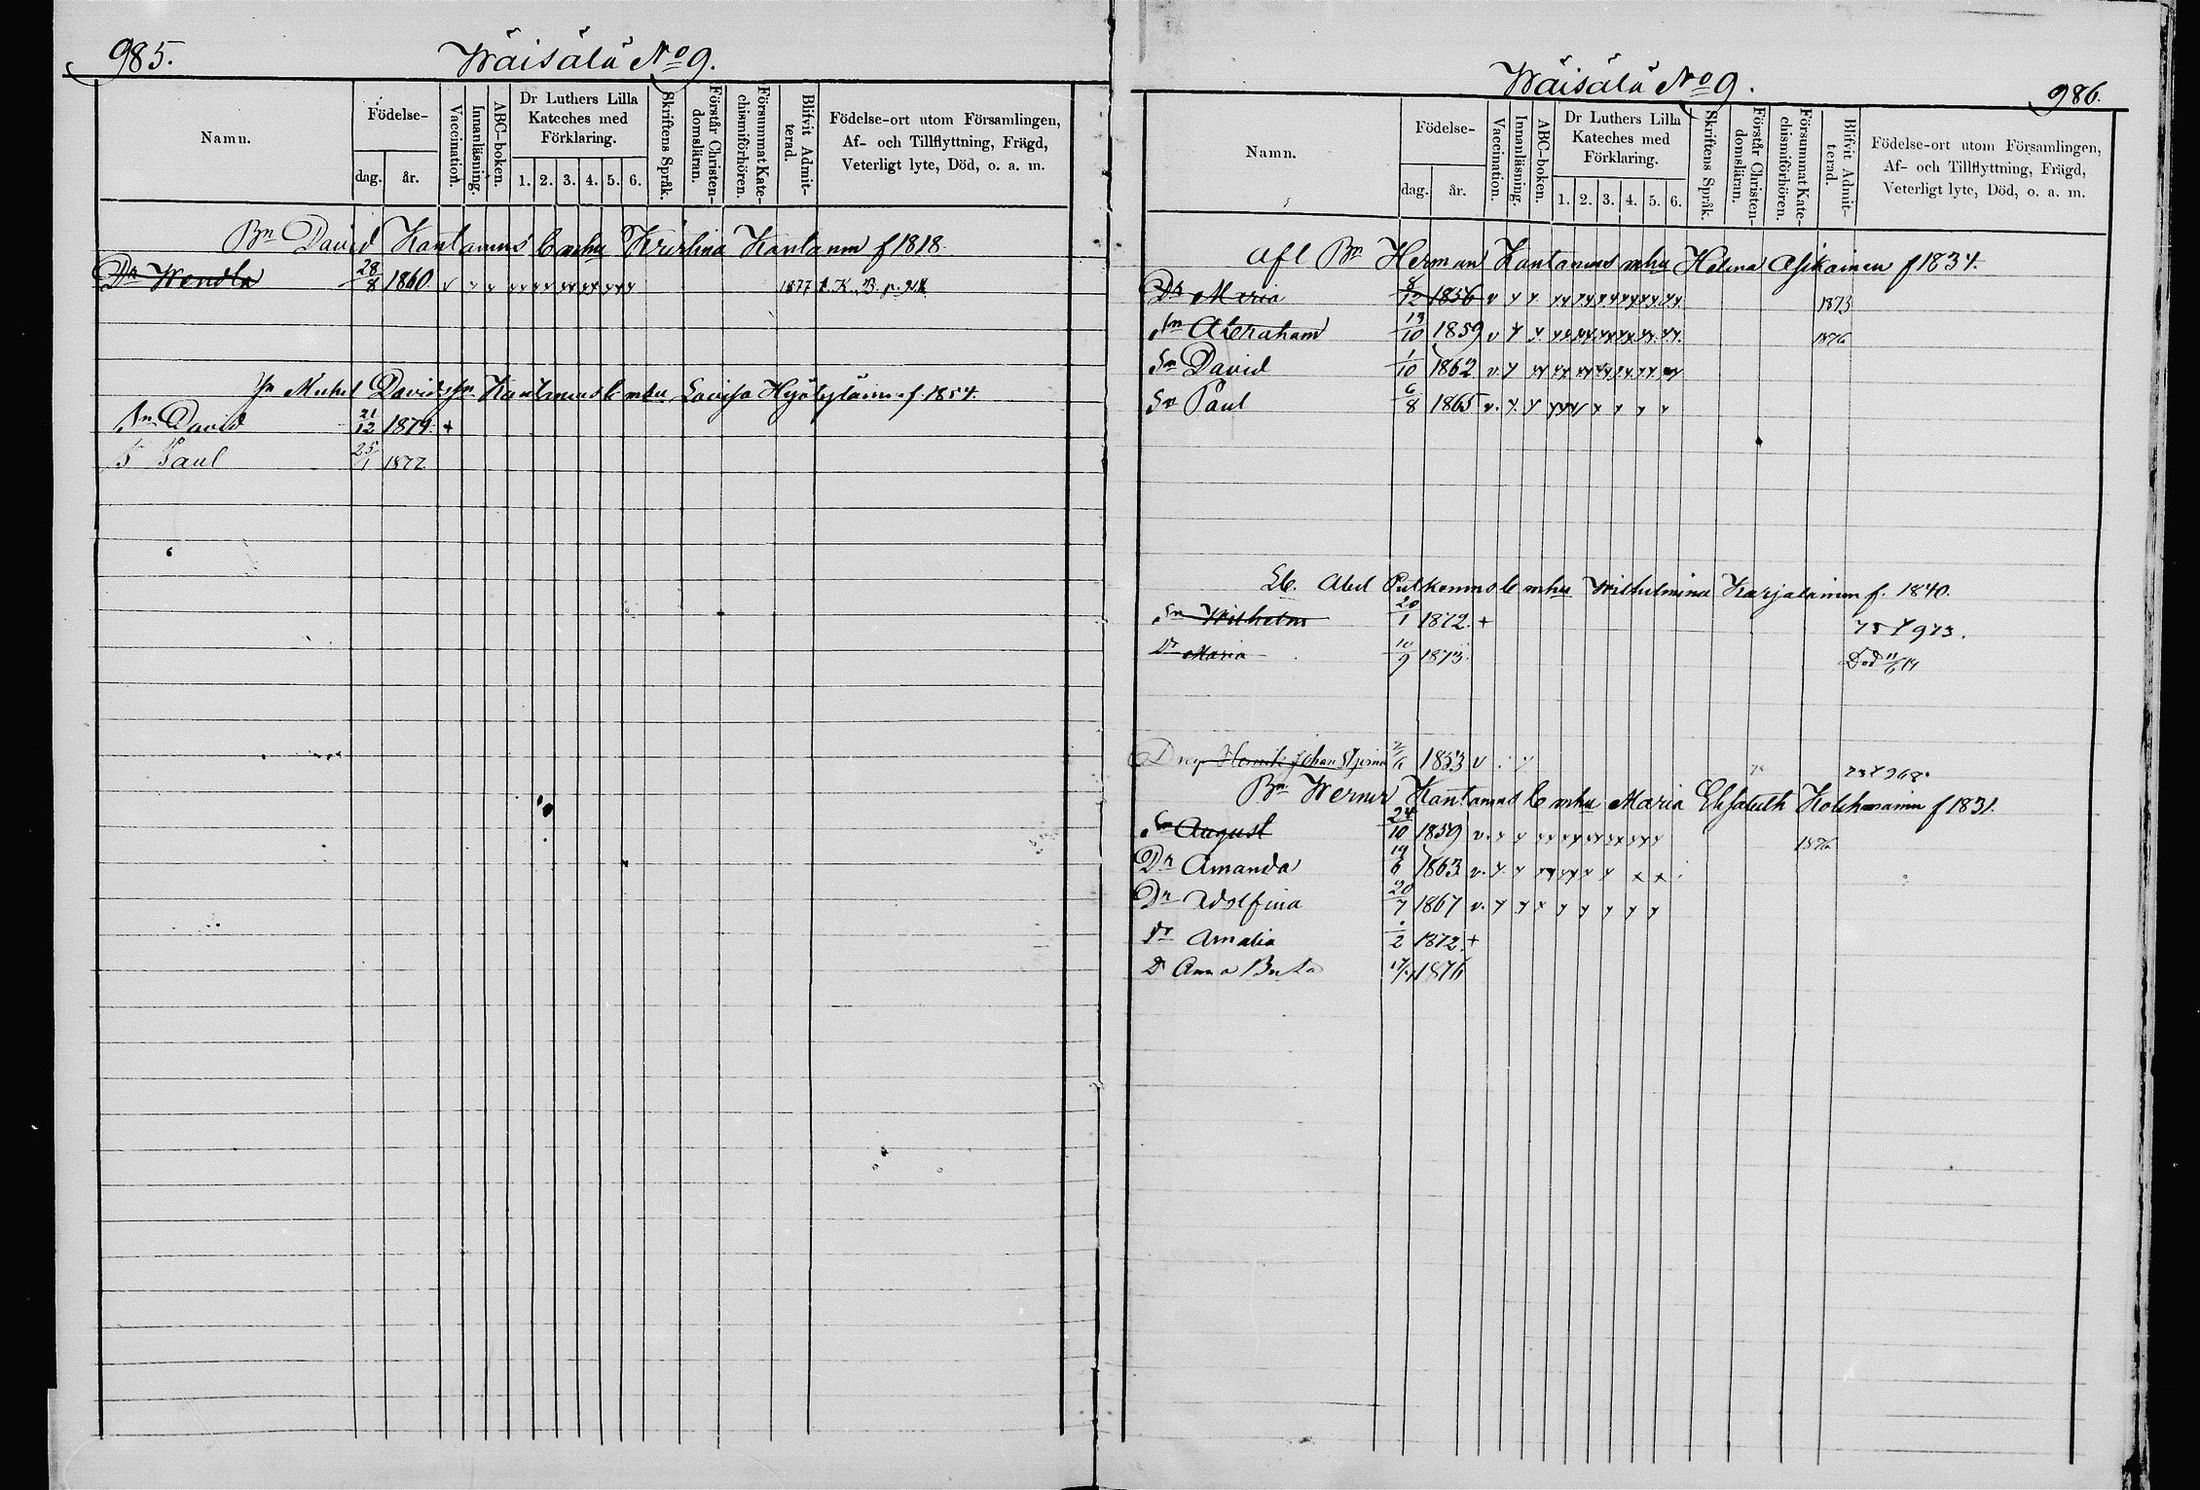 985.
Wäisälä No 9.
Namn.
Födelse-
dag.
år.
Vaccination.
Innanläsning.
ABC-boken.
Dr Luthers Lilla
Kateches med
Förklaring.
1. 2. 3. 4. 5. 6.
Skriftens Språk.
Förstår Christen-
domsläran.
Försummat Kate-
chismiförhören.
Blifvit Admit-
terad.
Födelse-ort utom Församlingen,
Af- och Tillflyttning, Frägd,
Veterligt lyte, Död, o. a. m.
Bn David Kantanens b mhu Kristina Kantanen f 1818.
Dr Wendla 28/8 1860 v 1877 K. B. p.
Michel Davidsson Kantanens b mhu Lovisa f. 1854.
Sn David 21/12 1874. +
S Paul 25/1 1877
Wäisälä No 9.
986.
Namn.
Födelse-
dag.
år.
Vaccination.
Innanläsning.
ABC-boken.
Dr Luthers Lilla
Kateches med
Förklaring.
1. 2. 3. 4. 5. 6.
Skriftens Språk.
Förstår Christen-
domsläran.
Försummat Kate-
chismiförhören.
Blifvit Admit-
terad.
Födelse-ort utom Församlingen,
Af- och Tillflyttning, Frägd,
Veterligt lyte, Död, o. a. m.
Afl Bn Herman Kantanens mhu Helena Asikainen f 1834.
Dr Maria 8/12 1856 v 1873
Sn Abraham 13/10 1859 v 1876
Sn David 1/10 1862 v.
Sn Paul 6/8 1865 v.
Lb. Abel Pulkonens b mhu Wilhelmina Karjalainen f. 1840.
Sn Wilhelm 20/1 1872. + 75 973.
Dr Maria 10/9 1873. Död 11/6 74
Henrik Johan 1853 v 968.
Bn Werner Kantanens b mhu Maria Elisabeth Kolehmainen f 1831.
Sn August 24/10 1859 v. 1876
Dr Amanda 19/6 1863 v.
Dr Adolfina 20/7 1867 v.
Dr Amalia 1872. +
D Anna 1876